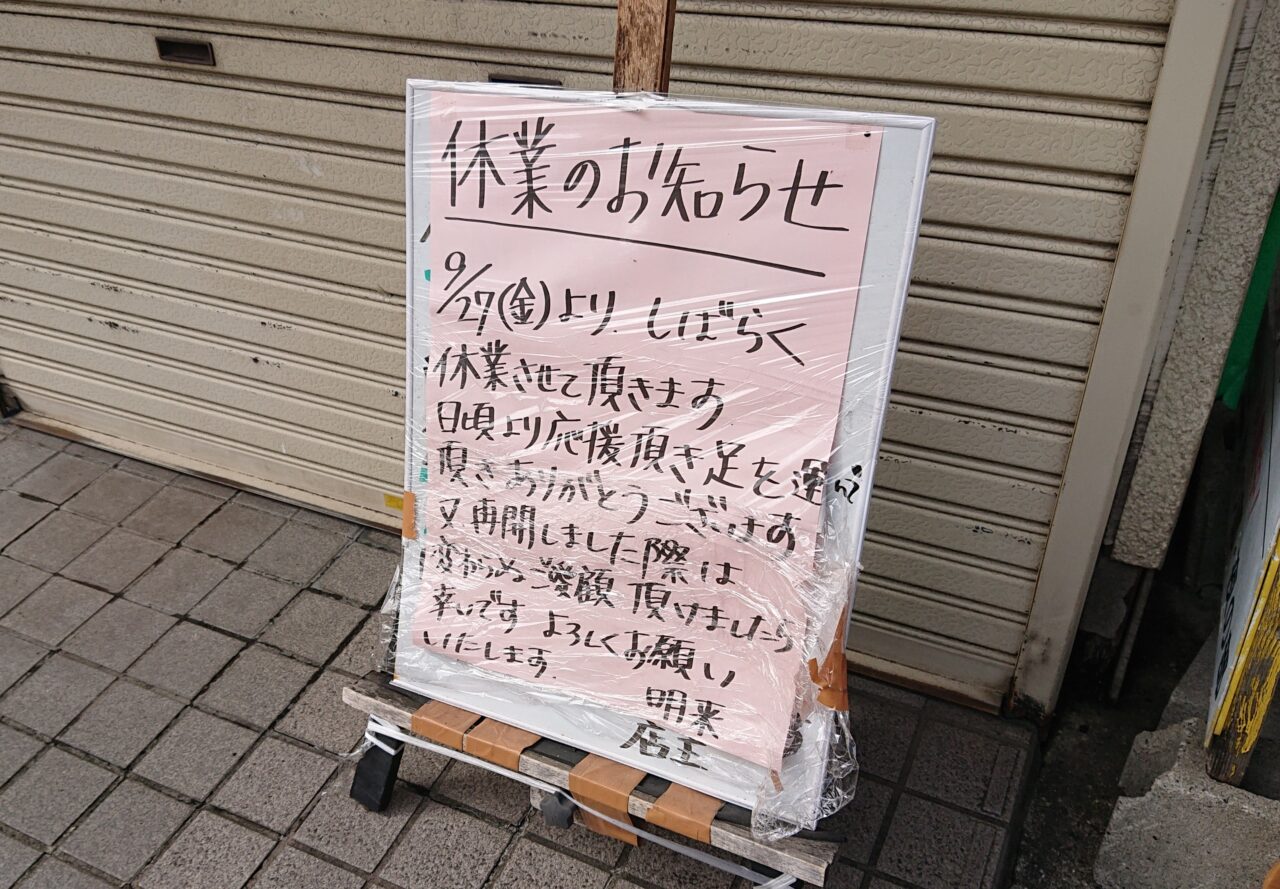 休業のお知らせ
9/27(金)より しばらく
休業させて頂きます
日頃より応援頂き足を運んで
頂きありがとうございます
又再開しました際は
変わらぬご愛顧頂けましたら
幸いです よろしくお願い
いたします.
明来
店主